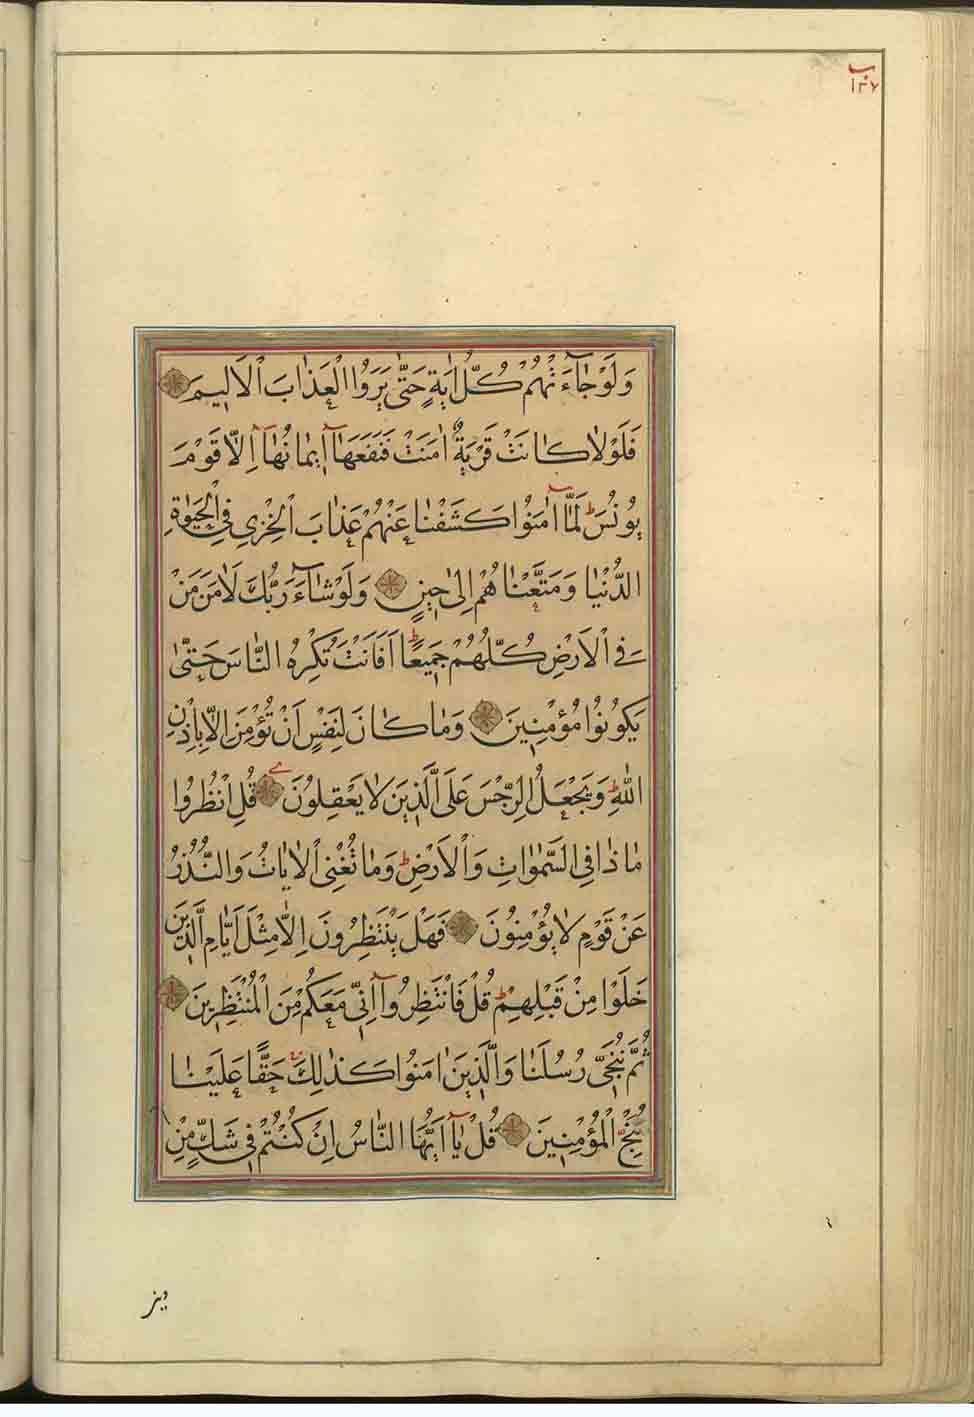 ب
١٣٧
وَلَوْ جَاءَتْهُمْ كُلُّ اٰيَةٍ حَتّٰى يَرَوُا الْعَذَابَ الْاَلِيمَ
فَلَوْلَا كَانَتْ قَرْيَةٌ اٰمَنَتْ فَنَفَعَهَا اِيمَانُهَا اِلَّا قَوْمَ
يُونُسَ ط لَمَّا اٰمَنُوا كَشَفْنَا عَنْهُمْ عَذَابَ الْخِزْيِ فِي الْحَيٰوةِ
الدُّنْيَا وَمَتَّعْنَاهُمْ اِلٰى حِينٍ وَلَوْ شَاءَ رَبُّكَ لَاٰمَنَ مَنْ
فِي الْاَرْضِ كُلُّهُمْ جَمِيعًا ط اَفَاَنْتَ تُكْرِهُ النَّاسَ حَتّٰى
يَكُونُوا مُؤْمِنِينَ وَمَا كَانَ لِنَفْسٍ اَنْ تُؤْمِنَ اِلَّا بِاِذْنِ
اللّٰهِ ط وَيَجْعَلُ الرِّجْسَ عَلَى الَّذِينَ لَا يَعْقِلُونَ قُلِ انْظُرُوا
مَاذَا فِي السَّمٰوَاتِ وَالْاَرْضِ ط وَمَا تُغْنِي الْاٰيَاتُ وَالنُّذُرُ
عَنْ قَوْمٍ لَا يُؤْمِنُونَ فَهَلْ يَنْتَظِرُونَ اِلَّا مِثْلَ اَيَّامِ الَّذِينَ
خَلَوْا مِنْ قَبْلِهِمْ ط قُلْ فَانْتَظِرُوا اِنِّي مَعَكُمْ مِنَ الْمُنْتَظِرِينَ
ثُمَّ نُنَجِّي رُسُلَنَا وَالَّذِينَ اٰمَنُوا كَذٰلِكَ حَقًّا عَلَيْنَا
نُنْجِ الْمُؤْمِنِينَ قُلْ يَا اَيُّهَا النَّاسُ اِنْ كُنْتُمْ فِي شَكٍّ مِنْ